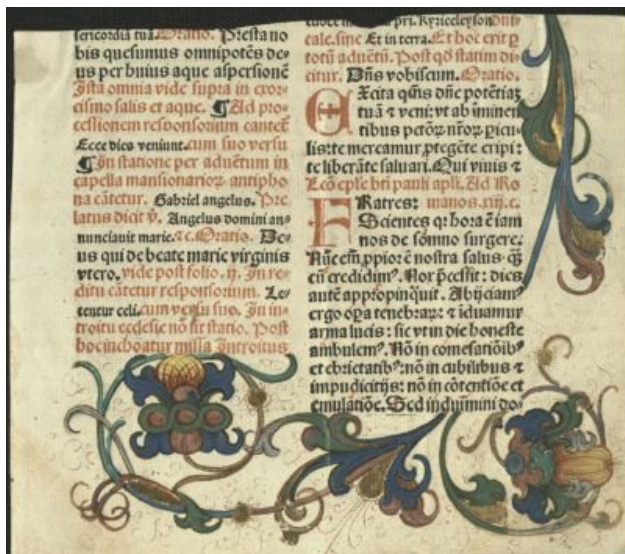 sericordiā tuā. Oratio. Presta no
bis quesumus omnipotēs de-
us per huius aque aspersionē
Ista omnia vide supra in exor-
cismo salis et aque. ¶ Ad pro-
cessionem responsorium cantēt
Ecce dies veniunt. cum suo versu
¶ In statione per aduētum in
capella mansionarioꝝ antipho
na cātetur. Gabriel angelus. Pre
latus dicit ꝟ. Angelus domini an-
nunciauit marie. ⁊c. Oratio. De-
us qui de beate marie virginis
vtero. vide post folio. ij. In re-
ditu cātetur responsorium. Le-
tentur celi. cum versu suo. In in-
troitu ecclesie nō fit statio. Post
hoc inchoatur missa Introitus
pri. Kyrieleyson
cale. sine Et in terra. Et hoc erit ꝑ
totū aduētū. Post qđ statim di-
citur. Dn̄s vobiscum. Oratio.
EXcita qs̄ns dn̄e potētiaꝫ
tuā ⁊ veni: vt ab iminen
tibus petōꝝ nr̄oꝝ ꝑicu-
lis: te mereamur ꝓtegēte eripi:
te liberāte saluari. Qui viuis ⁊
Lcō eplē bt̄i pauli apl̄i. Ad Ro
FRatres: manos. xiij. c.
Scientes qꝛ hora ē iam
nos de somno surgere.
Nūc em̄ ꝓpior ē nostra salus qꝫ̄
cū credidimꝰ. Nox p̄cessit: dies
autē appropinq̇uit. Abijciamꝰ
ergo oꝑa tenebraꝝ: ⁊ iduamur
arma lucis: sic vt in die honeste
ambulemꝰ. Nō in comesatiōibꝰ
et ebrietatibꝰ: nō in cubilibus ⁊
impudicitijs: nō in cōtentiōe et
emulatiōe. Sed induimini do-